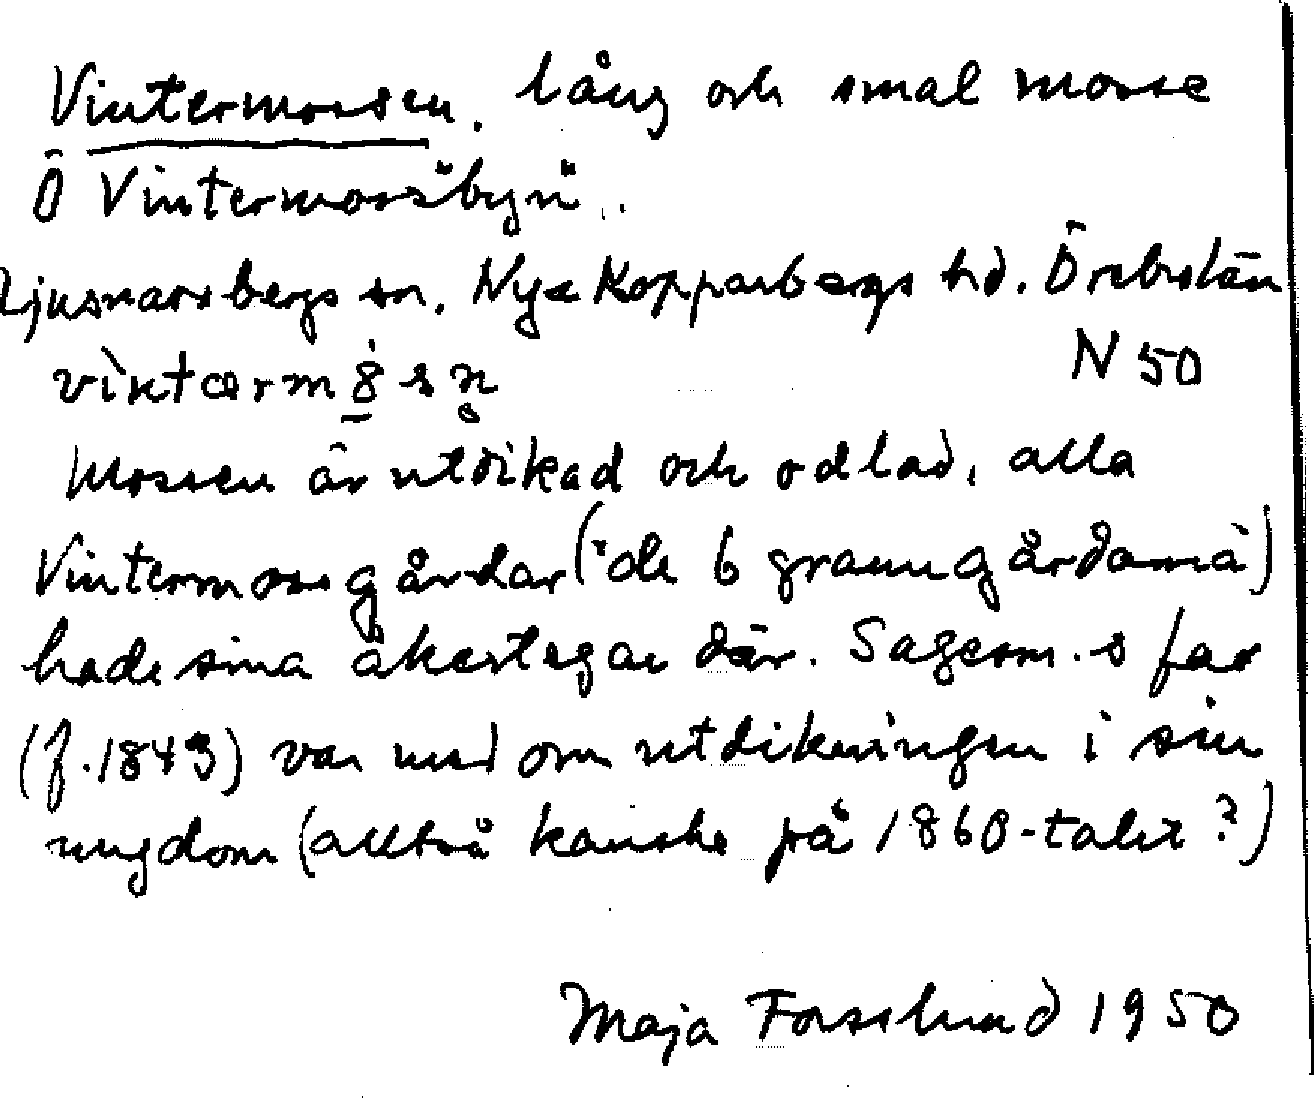 Vintermossen. lång och smal mosse
Ö Vintermoss"byn".
Ljusnarsbergs sn. Nya Kopparbergs hd. Örebro län
N 50
Mossen är utdikad och odlad, alla
Vintermossgårdar ("de 6 granngårdarna")
hade sina åkertegar där. Sagesm.s far
(f. 1843) var med om utdikningen i sin
ungdom (alltså kanske på 1860-talet?)
Maja Forsslund 1950